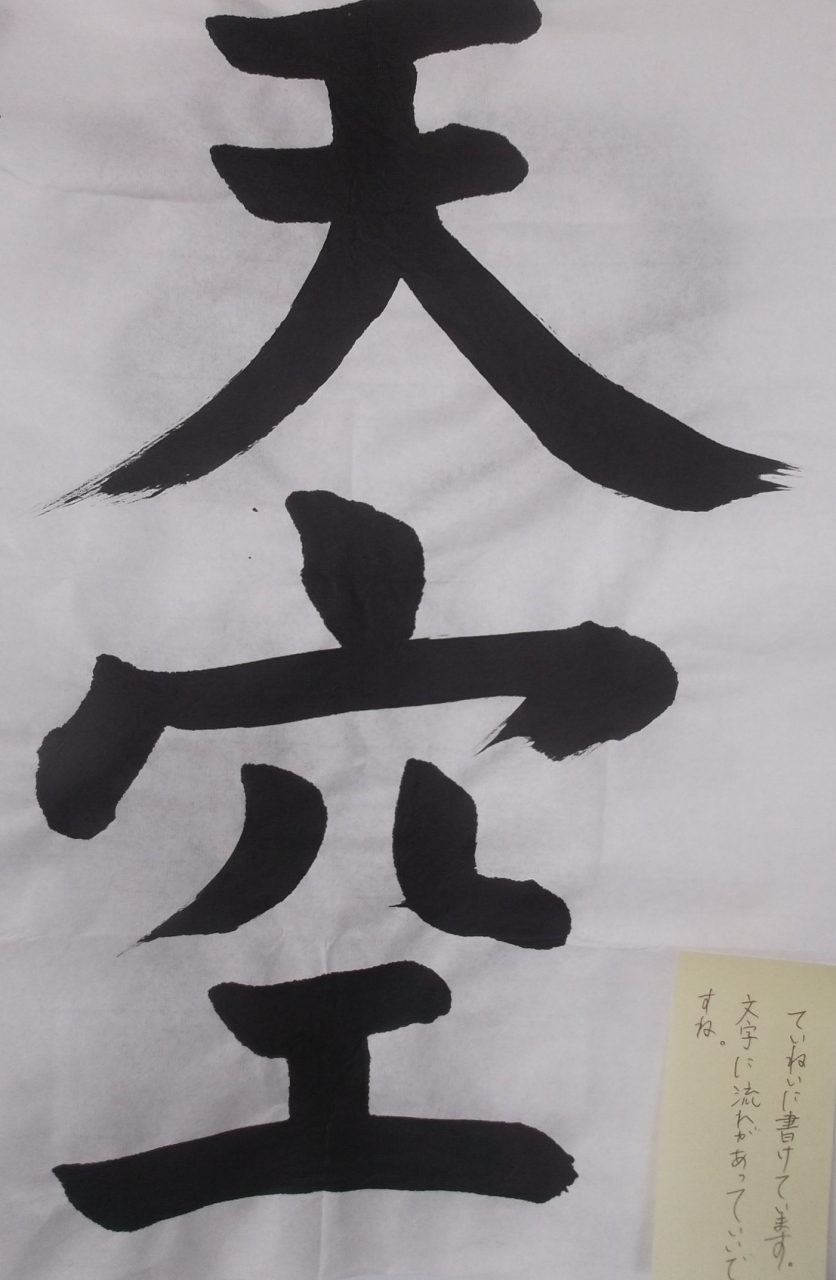 天空
ていねいに書けています。
文字に流れがあっていいで
すね。